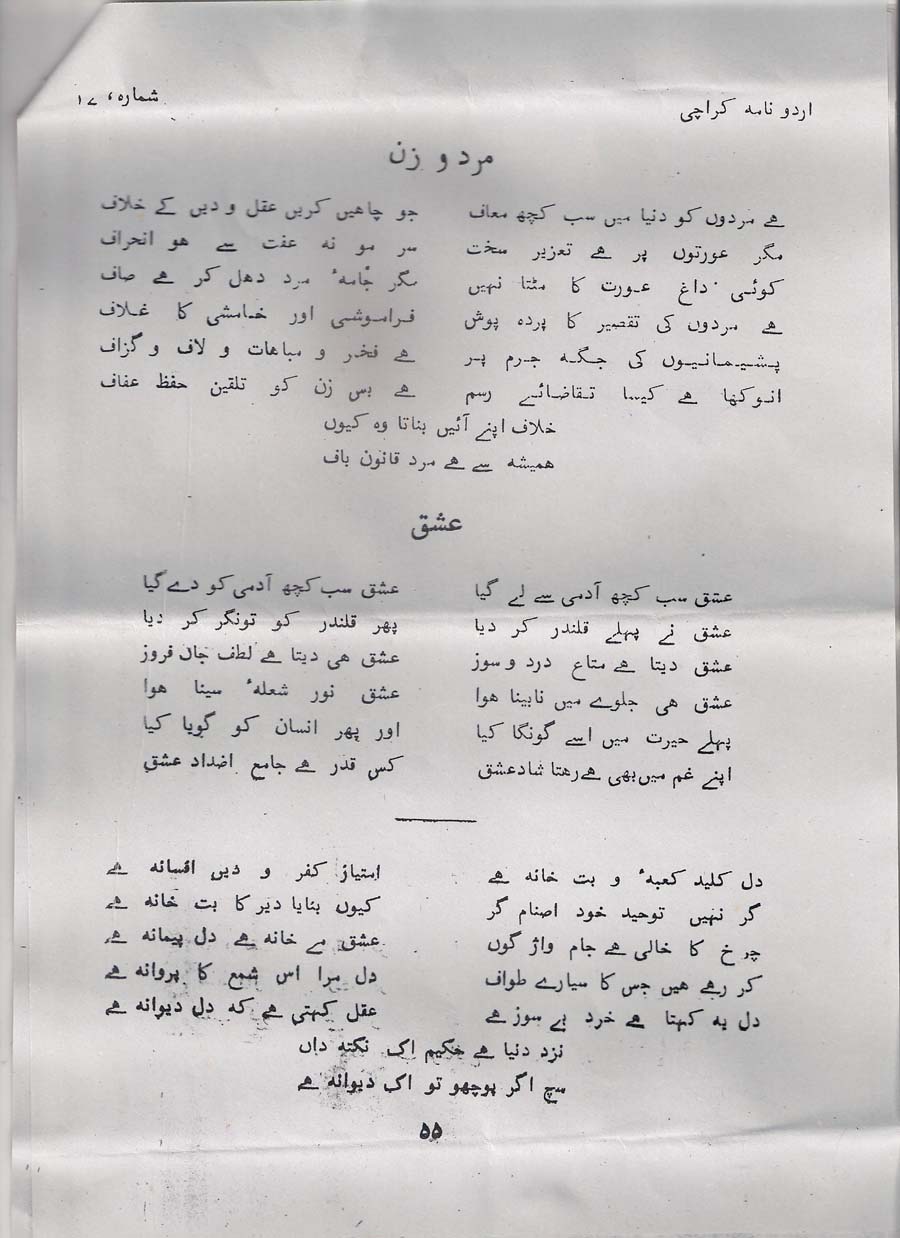 اردو نامہ کراچی شمارہ، ۱۷
مرد و زن
ہے مردوں کو دنیا میں سب کچھ معاف جو چاھیں کریں عقل و دیں کے خلاف
مگر عورتوں پر ہے تعزیر سخت سر مو نہ عفت سے ھو انحراف
کوئی داغ عورت کا مٹتا نہیں مگر جامہٴ مرد دھل کر ہے صاف
ہے مردوں کی تقصیر کا پردہ پوش فراموشی اور خامشی کا غلاف
پشیمانیوں کی جگہ جرم پر ہے فخر و مباھات و لاف و گزاف
انوکھا ہے کیسا تقاضائے رسم ہے بس زن کو تلقین حفظ عفاف
خلاف اپنے آئیں بناتا وہ کیوں
ھمیشہ سے ہے مرد قانون باف
عشق
عشق سب کچھ آدمی سے لے گیا عشق سب کچھ آدمی کو دے گیا
عشق نے پہلے قلندر کر دیا پھر قلندر کو تونگر کر دیا
عشق دیتا ہے متاع درد و سوز عشق ھی دیتا ہے لطف جاں فروز
عشق ھی جلوے میں نابینا ھوا عشق نور شعلہٴ سینا ھوا
پہلے حیرت میں اسے گونگا کیا اور پھر انسان کو گویا کیا
اپنے غم میں بھی ہے رھتا شاد عشق کس قدر ہے جامع اضداد عشق
دل کلید کعبہٴ و بت خانہ ہے امتیاز کفر و دیں افسانہ ہے
گر نہیں توحید خود اصنام گر کیوں بنایا دیر کا بت خانہ ہے
چرخ کا خالی ہے جام واژ گوں عشق مے خانہ ہے دل پیمانہ ہے
کر رہے ھیں جس کا سیارے طواف دل مرا اس شمع کا پروانہ ہے
دل یہ کہتا ہے خرد بے سوز ہے عقل کہتی ہے کہ دل دیوانہ ہے
نزد دنیا ہے حکیم اک نکتہ داں
سچ اگر پوچھو تو اک دیوانہ ہے
۵۵